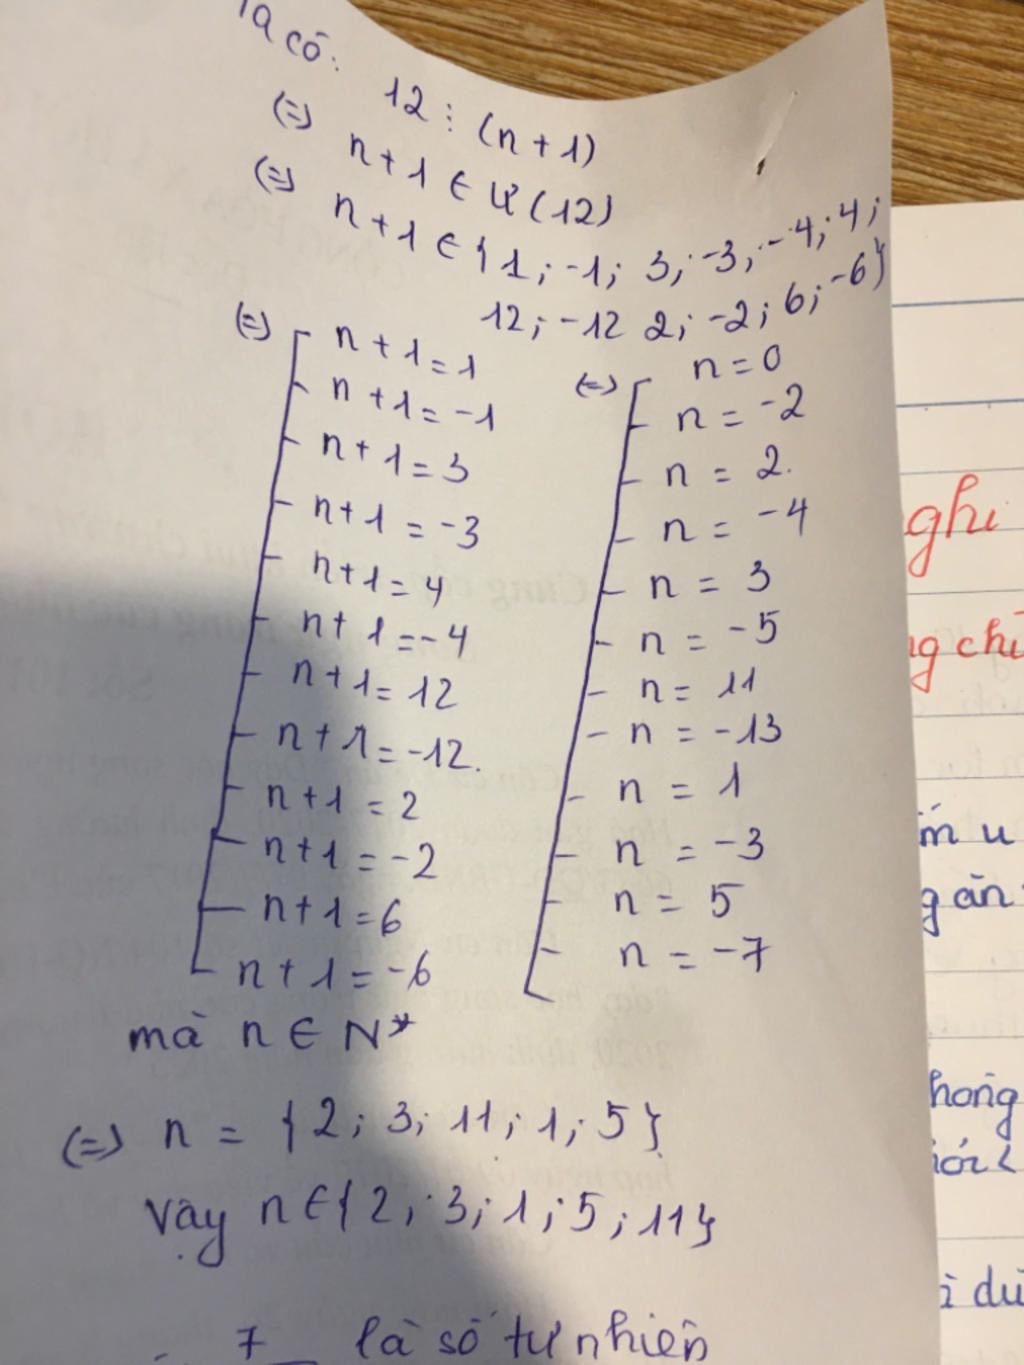 Ta có:
12 ⋮ (n + 1)
(=) n + 1 ∈ Ư (12)
(=) n + 1 ∈ { 1 ; -1 ; 3 ; -3 ; -4 ; 4 ;
12 ; -12 2 ; -2 ; 6 ; -6 }
(=) n + 1 = 1
n + 1 = -1
n + 1 = 3
n + 1 = -3
n + 1 = 4
n + 1 = -4
n + 1 = 12
n + 1 = -12.
n + 1 = 2
n + 1 = -2
n + 1 = 6
n + 1 = -6
(=) n = 0
n = -2
n = 2.
n = -4
n = 3
n = -5
n = 11
n = -13
n = 1
n = -3
n = 5
n = -7
mà n ∈ N*
(=) n = { 2 ; 3 ; 11 ; 1 ; 5 }
Vậy n ∈ { 2 ; 3 ; 1 ; 5 ; 11 }
7 là số tự nhiên
ghi